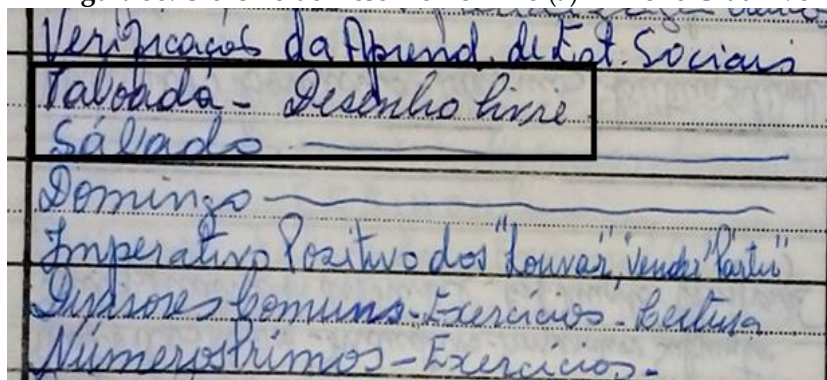 Verificação da Aprend. de Est. Sociais
Taboada - Desenho livre
Sábado
Domingo
Imperativo Positivo dos "Louvar", "Vender" "Partir"
Divisores Comuns - Exercícios - Leitura
Números Primos - Exercícios -